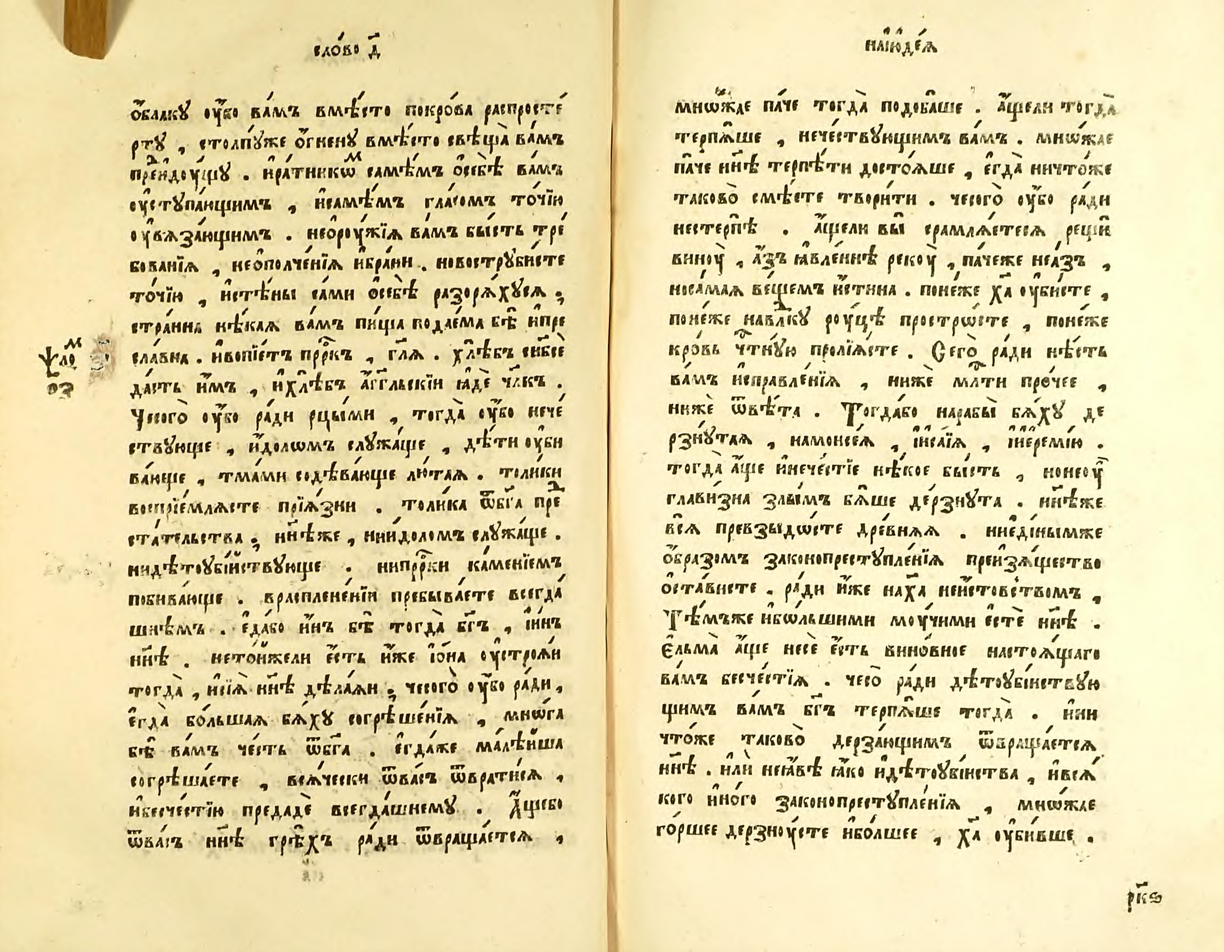 сло́во д҃
ѡ҆́блаку ѹ҆́бо ва́мъ вмѣ́сто покро́ва распросте́
рту , столпу́же ѻ҆́гнену вмѣ́сто свѣща̀ ва́мъ
пре́идѹщу . и҆ра́тникѡм самѣ́мъ ѻ҆себѣ̀ ва́мъ
ѹ҆ступа́ющимъ , и҆самѣ́мъ гла́сомъ то́чїю
ѹ҆вѧза́ющимъ . не҆орꙋ́жїѧ ва́мъ бы́сть тре́
бованїѧ , не҆ополче́нїѧ и҆бра́ни . новострꙋби́сте
то́чїю , и҆стѣ́ны са́ми ѻ҆себѣ̀ разорѧ́хусѧ ;
стра́нна нѣ́каѧ ва́мъ пи́ща подае́ма бѣ̀ и҆пре
сла́вна . и҆вопїе́тъ прр҃къ , гл҃ѧ . хлѣ́бъ с̾нб҃се
да́сть и҆̀мъ , и҆хлѣ́бъ а҆́гг҃льскїи ꙗ҆дѐ чл҃къ .
ѱало́м
о҃з
Чесого̀ ѹ҆́бо ра́ди рцы́ми , тогда̀ ѹ҆́бо нече́
ствующе , и҆́долѡмъ слꙋжа́ще , дѣ́ти ѹ҆би
ва́юще , тма́ми содѣ́вающе лю́таѧ . то́лики
воспрїе́млѧсте прїѧ́зни . то́лика ѿбг҃а пред
ста́тельства ; нн҃ѣже , нии҆́долѡмъ слꙋжа́ще .
нидѣтоꙋбі́йствующе . нипрр҃ки ка́менїемъ
побива́юще . в̾распленє́нїи пребыва́ете всегда̀
шнѣ́мъ . є҆да́бо и҆́нъ бѣ̀ тогда̀ бг҃ъ , и҆и҆́нъ
нн҃ѣ . нето́иже́ли є҆́сть и҆́же ї҆́она ѹ҆стро́ѧи
тогда̀ , и҆сїѧ̀ нн҃ѣ дѣ́лаѧи ; чесого̀ ѹ҆́бо ра́ди ,
є҆гда̀ бо́льшаѧ бѧ́хꙋ согрѣше́нїѧ , мнѡ́га
бѣ̀ ва́мъ че́сть ѿбг҃а . є҆гда́же малѣ́йша
согрѣша́ете , всѧ́чески ѿва́съ ѿврати́сѧ ,
и҆бесче́стїю предадѐ всегда́шнему . А҆́щебо
ѿва́съ нн҃ѣ грѣ́хъ ра́ди ѿвраща́етсѧ ,
наїю҆де́ѧ
мнѡ́жае па́че тогда̀ подоба́ше . а҆́щели тогда̀
терпѧ́ше , нече́ствꙋющимъ ва́мъ . мнѡ́жае
па́че нн҃ѣ терпѣ́ти досто́ѧше , є҆гда̀ ничто́же
таково̀ смѣ́ете твори́ти . чесого̀ ѹ҆́бо ра́ди
нестерпѣ̀ . а҆́щели вы̀ срамлѧ́етесѧ рещѝ
винꙋ̀ , а҆́зъ ꙗ҆вле́ннѣ рекꙋ̀ , па́чеже неа҆́зъ ,
носа́маѧ ве́щемъ и҆́стина . поне́же х҃а ѹ҆би́сте ,
поне́же навлⷣкꙋ рꙋ́цѣ простро́сте , поне́же
кро́вь чт҃нꙋю пролїѧ́сте . Сего̀ ра́ди нѣ́сть
ва́мъ и҆справле́нїѧ , нижѐ млⷭ҇ти про́чее ,
нижѐ ѿвѣ́та . Тогда́бо нарабы̀ бѧ́хꙋ де
рзнꙋ́таѧ , намоисе́ѧ , ї҆иса́їѧ , ї҆ї҆ереми́ю .
тогда̀ а҆́ще и҆нече́стїе нѣ́кое бы́сть , ноне҆оꙋ
главизна̀ злы́мъ бѧ́ше дерзнꙋ́та . нн҃ѣже
всѧ̀ превзыдо́сте дре́внѧѧ . ниє҆ди́нымже
ѻ҆́бразомъ законопрестꙋпле́нїѧ преизѧ́щество
ѡ҆ста́висте . ра́ди и҆́же нах҃а неи҆́стовствомъ ,
Тѣ́мъже и҆бѡ́льшими мꙋ́чими є҆стѐ нн҃ѣ .
Є҆льма̀ а҆́ще несѐ є҆́сть вино́вное настоѧ́щаго
ва́мъ бесче́стїѧ . чесо̀ ра́ди дѣтоꙋбі́йствꙋю
щимъ ва́мъ бг҃ъ терпѧ́ше тогда̀ . ни́и
что́же таково̀ дерза́ющимъ ѿвраща́етсѧ
нн҃ѣ . и҆лѝ неꙗ҆́вѣ ꙗ҆́ко и҆дѣтоꙋбі́йства , и҆всѧ́
кого и҆но́го законопрестꙋпле́нїѧ , мнѡ́жае
го́ршее дерзнꙋ́сте и҆бо́лшее , х҃а ѹ҆би́вше .
рк҃ѕ